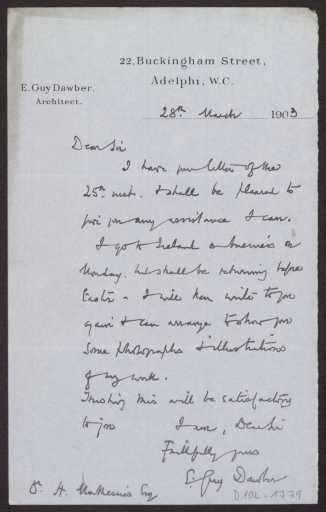 22, Buckingham Street,
Adelphi, W.C.
E. Guy Dawber.
Architect.
28th March 1903
Dear Sir
I have your letter of the
25th inst. & shall be pleased to
give you any assistance I can.
I go to Ireland on business on
Monday. but shall be returning before
Easter - I will then write to you
again & can arrange to show you
some photographs & illustrations
of my work.
Trusting this will be satisfactory
to you I am, Dear Sir
Faithfully yours
E. Guy Dawber
Dr. H. Muthesius Esq
D 102-1779